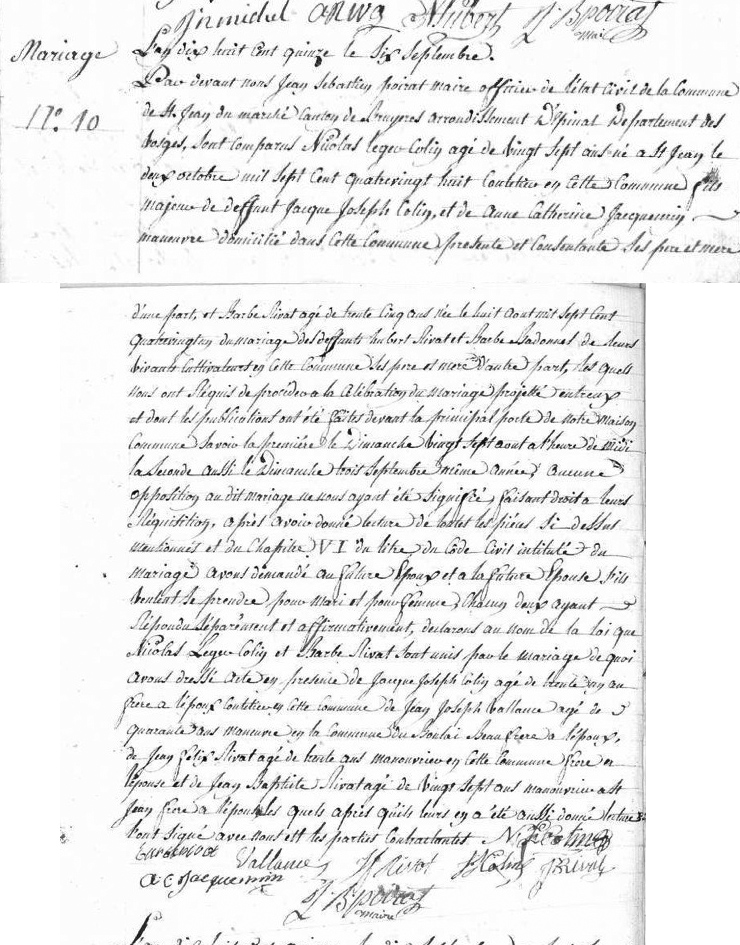 J n michel N hubert J S poirat
maire
Mariage
N.° 10
L'an dix huit cent quinze le six Septembre.
Par devant nous Jean Sebastien poirat maire officier de l'état Civil de la Commune
de St. Jean du marché Canton de Bruyeres arrondissement D'Epinal Departement des
Vosges, sont comparus Nicolas leger Colin agé de vingt sept ans né a St Jean le
deux octobre mil sept Cent quatrevingt huit en cette Commune fils
majeur de deffunt Jacque Joseph Colin, et de Anne Catherine Jacquemin
manœuvre domicilié dans Cette Commune presente et Consentante Ses pere et mere
d'une part, et Barbe Rivat agé de trente Cinq ans née le huit aout mil sept Cent
quatrevingt du mariage des deffunts hubert Rivat et Barbe Badonnel de leurs
vivants Cultivateurs en Cette Commune Ses pere et mere D'autre part, les quels
nous ont Requis de proceder a la Célébration du mariage projetté entreux
et dont les publications ont été faites devant la principal porte de notre Maison
Commune Savoir la première le Dimanche vingt Sept aout a l'heure de midi
la Seconde aussi le Dimanche trois Septembre même année, aucune
opposition au dit mariage ne nous ayant été Signifié, faisant droit a leurs
Réquisition, après avoir donné lecture de toutes les pièces Si dessus
mentionnés et du Chapitre VI du titre du Code Civil intitulé du
mariage avons demandé au future Epoux et a la future Epouse S'ils
veulent Se prendre pour Mari et pour femme, Chacun deux ayant
Répondu Séparément et affirmativement, declarons au nom de la loi que
Nicolas Leger Colin et Barbe Rivat Sont unis par le mariage de quoi
avons dressé acte en presence de Jacque Joseph Colin agé de trente un an
frere a l'époux en Cette Commune de Jean Joseph Vallance agé de
quarante ans maneuvre en la Commune du Boulai Beau frere a l'époux,
de Jean felix Rivat agé de trente ans manouvrier en Cette Commune frere a
l'épouse et de Jean Baptiste Rivat agé de vingt Sept ans manouvrier a St
Jean frere a l'épouse les quels après qu'ils leurs en a été aussi donné lecture
l'ont Signé avec nous et les parties Contractantes N L Colin
Vallance J f Rivat J J Colin J B Rivat
A C Jacquemin
J S poirat
maire